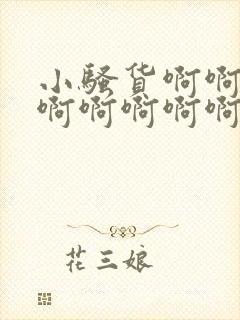 小骚货啊啊
啊啊啊啊啊
花三娘